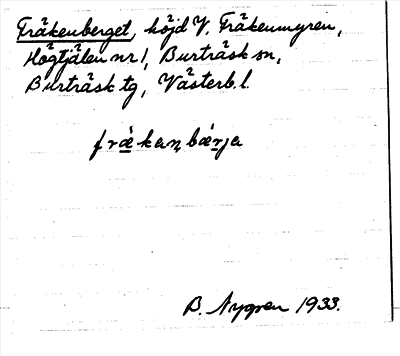 Fräkenberget, höjd V. Fräkenmyren,
Högtjälen nr 1, Burträsk sn,
Burträsk tg, Västerb. l.
fræ̀kan̥bæ̀rja
B. Nygren 1933.